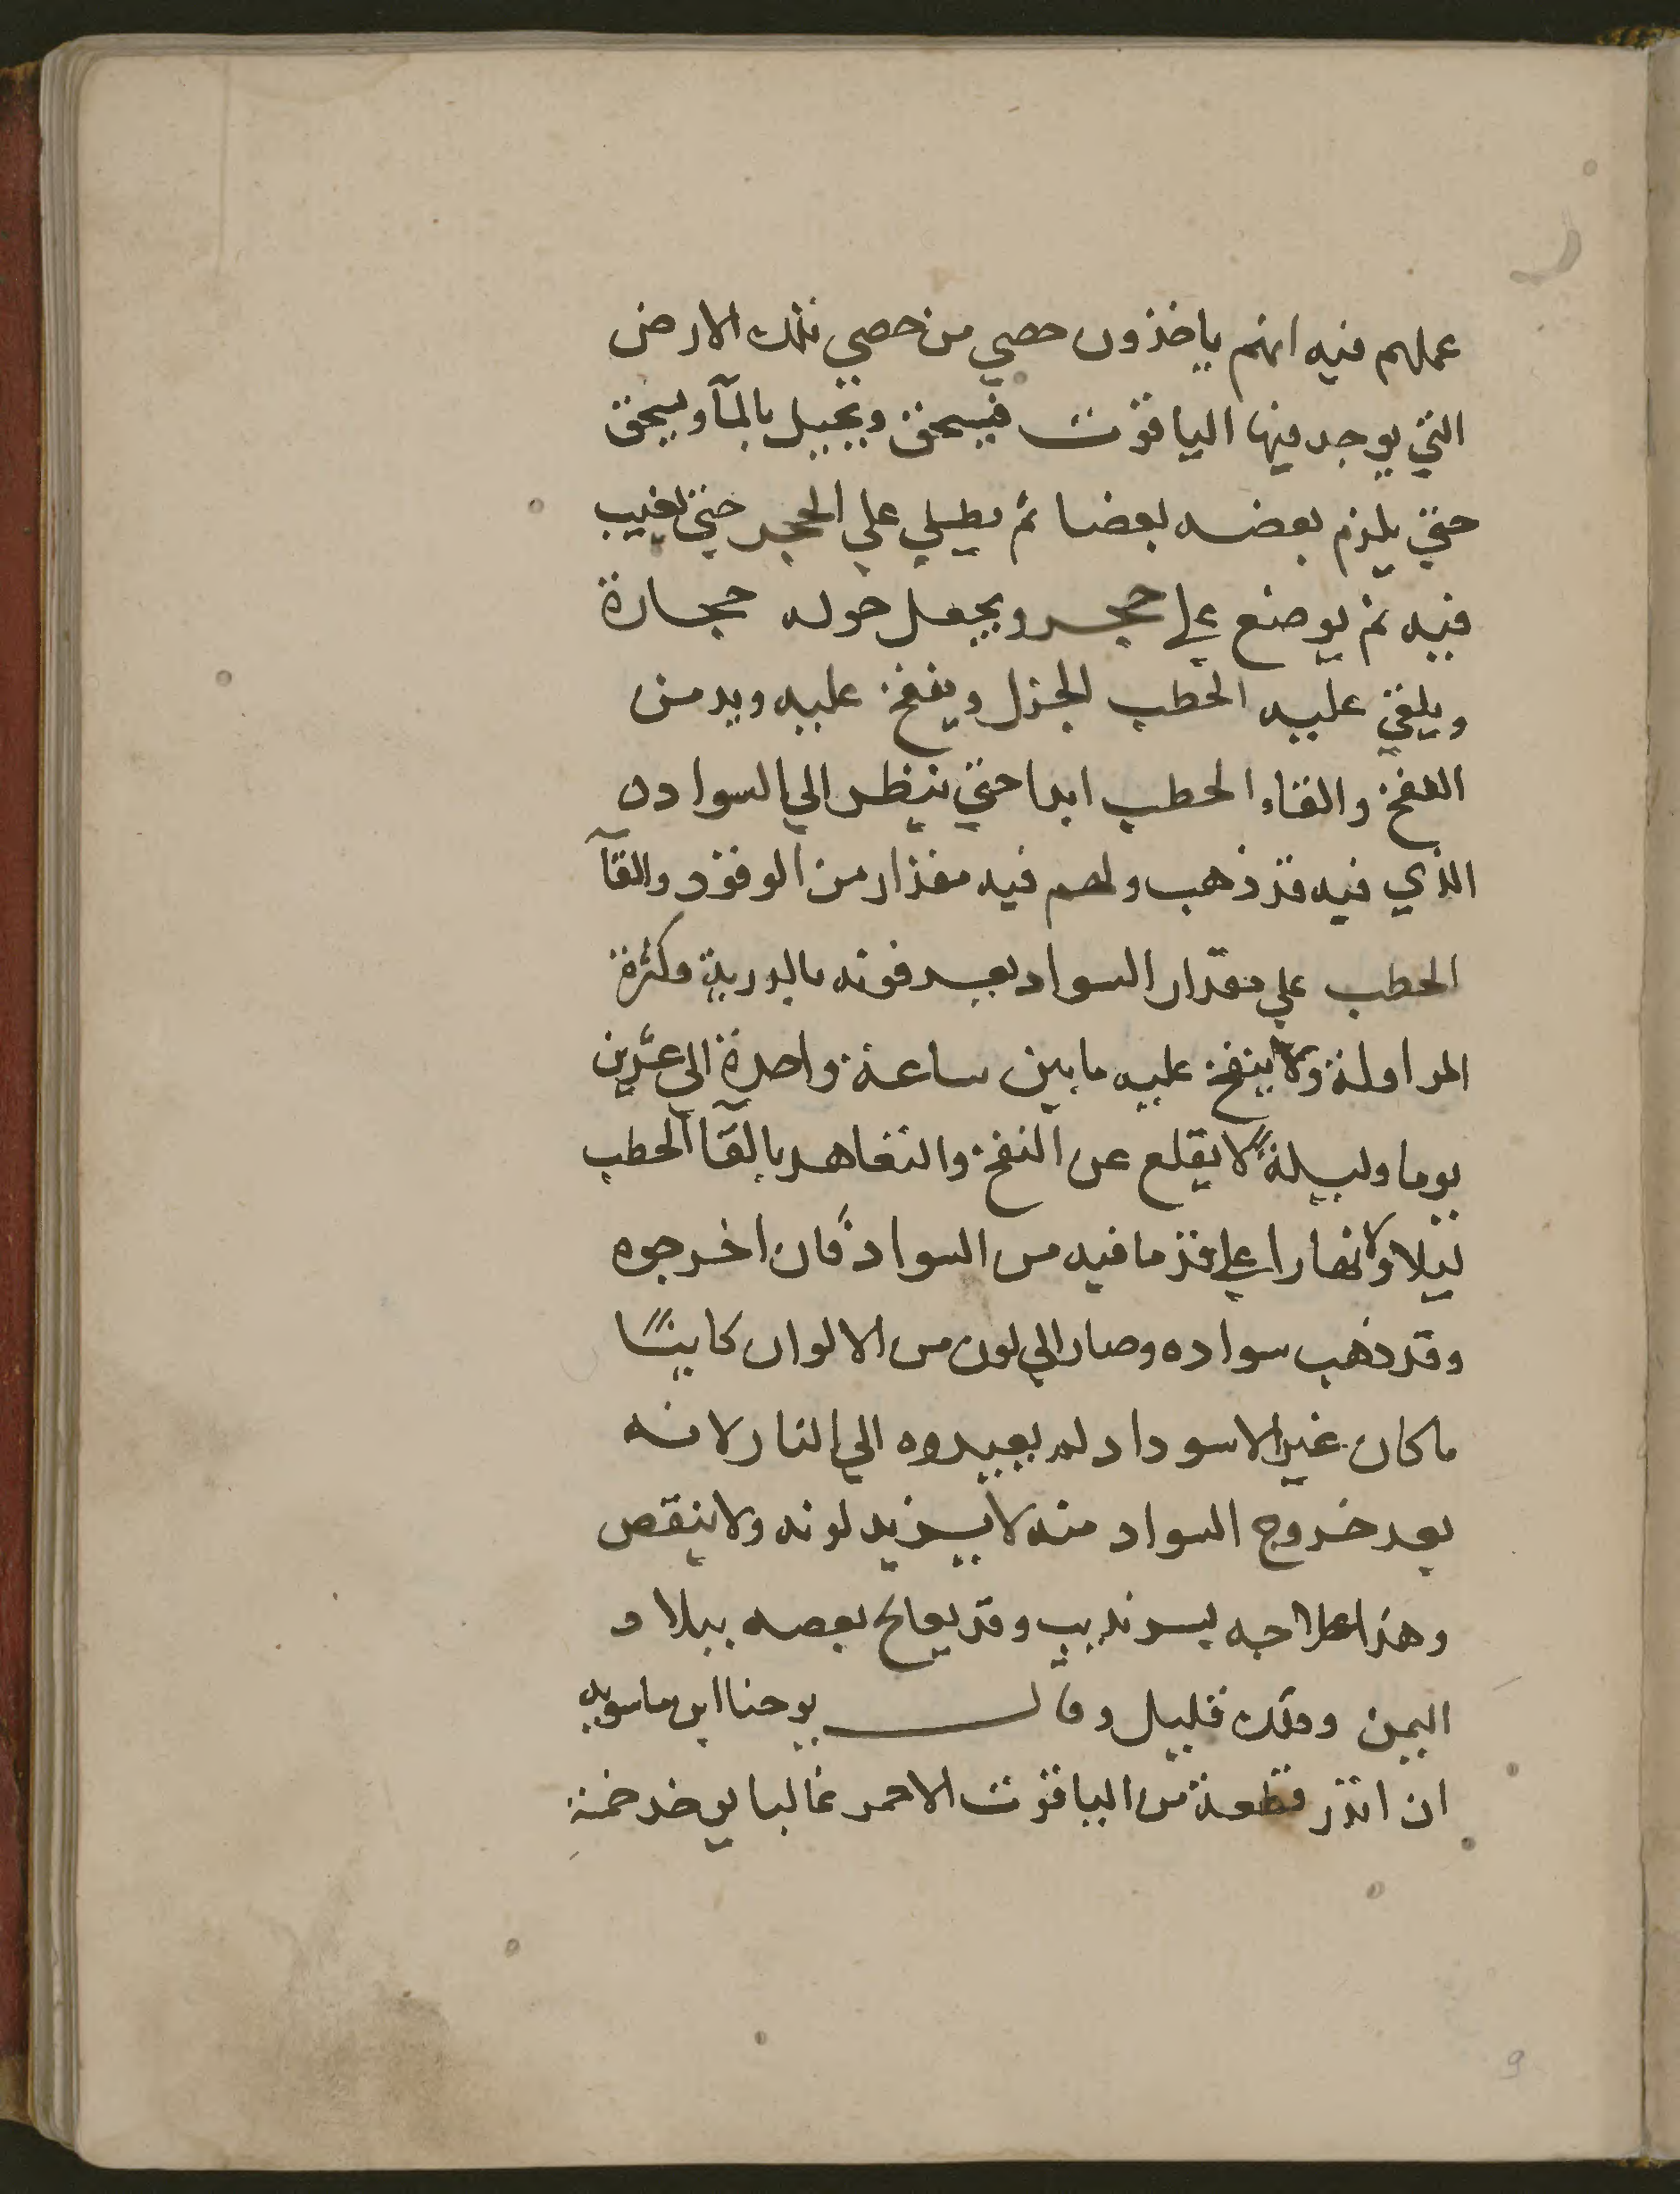 عملهم فيه انهم ياخذون حصي من حصي تلك الارض
التي يوجد فيها الياقوت فيسحق ويجبل بالمآ ويسحق
حتي يلزم بعضه بعضا ثم يطلي علي الحجر حتي يغيب
فيه ثم يوضع علي حجر ويجعل حوله حجارة
ويلقي عليه الحطب الجزل وينفخ عليه ويدمن
النفخ والقاء الحطب ابدا حتي ينظر الي السواد
الذي فيه قد ذهب ولهم فيه مقدار من الوقود والقآ
الحطب علي مقدار السواد يعرفونه بالدربة وكثرة
المزاولة ولا ينفخ عليه ما بين ساعة واحدة الي عشرين
يوما وليلة لا يقلع عن النفخ والتعاهد بالقآ الحطب
ليلا ولا نهارا علي قدر ما فيه من السواد فان اخرجوه
وقد ذهب سواده وصار الي لون من الالوان كاينًا
ما كان غير الاسوداد لم يعيدوه الي النار لانه
بعد خروج السواد منه لا يزيد لونه ولا ينقص
وهذا علاجه بسرنديب وقد يعالج بعضه ببلاد
اليمن وذلك قليل وقال يوحنا ابن ماسويه
ان اندر قطعة من الياقوت الاحمر غالبا يوخذ خمنه
9